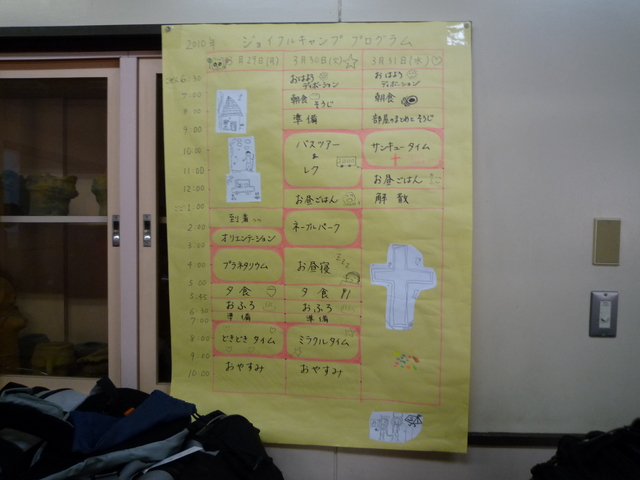 2010年 ジョイフルキャンプ プログラム
3月29日(月) 3月30日(火) 3月31日(水)
6:30
7:00
8:00
9:00
10:00
11:00
12:00
1:00
2:00
3:00
4:00
5:00
5:45
6:30
7:00
8:00
9:00
10:00
到着
オリエンテーション
プラネタリウム
夕食
おふろ
準備
どきどきタイム
おやすみ
おはよう
ディボーション
朝食
そうじ
準備
バスツアー
&
レク
お昼ごはん
ネーブルパーク
お昼寝
夕食
おふろ
準備
ミラクルタイム
おやすみ
おはよう
ディボーション
朝食
部屋のまとめとそうじ
サンキュータイム
お昼ごはん
解散